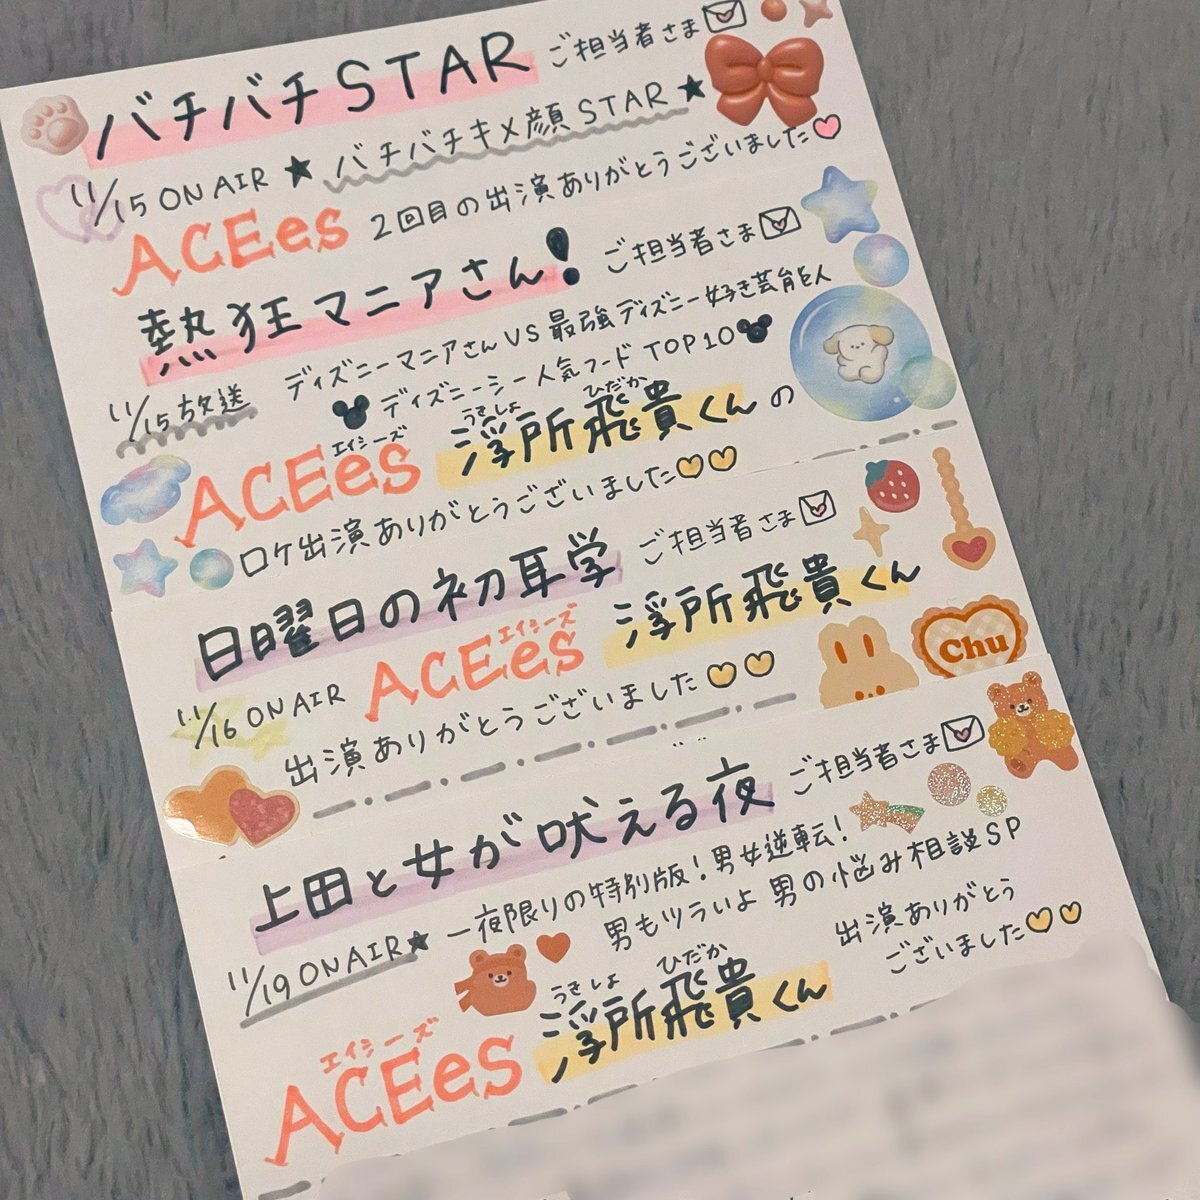 バチバチSTAR ご担当者さま
11/15 ON AIR ★ バチバチキメ顔STAR★
ACEes 2回目の出演ありがとうございました
熱狂マニアさん! ご担当者さま
11/15放送 ディズニーマニアさんVS最強ディズニー好き芸能人
ディズニーシー人気フードTOP10
ACEes エイシーズ 浮所飛貴くんの うきしょ ひだか
ロケ出演ありがとうございました
日曜日の初耳学 ご担当者さま
11/16 ON AIR ACEes エイシーズ 浮所飛貴くん
出演ありがとうございました
Chu
上田と女が吠える夜 ご担当者さま
11/19 ON AIR★ 一夜限りの特別版!男女逆転!
男もツラいよ 男の悩み相談SP
ACEes エイシーズ 浮所飛貴くん うきしょ ひだか
出演ありがとう
ございました